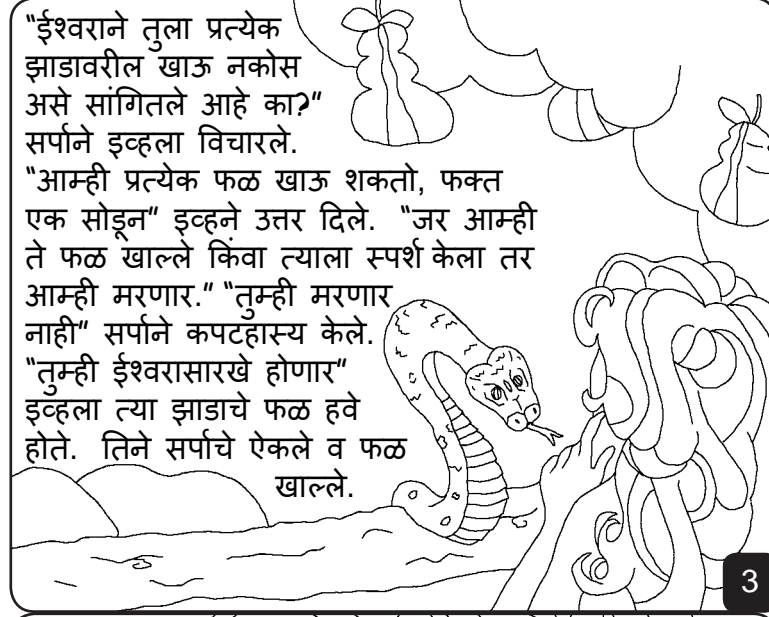 "ईश्वराने तुला प्रत्येक
झाडावरील खाऊ नकोस
असे सांगितले आहे का?"
सर्पाने इव्हला विचारले.
"आम्ही प्रत्येक फळ खाऊ शकतो, फक्त
एक सोडून" इव्हने उत्तर दिले. "जर आम्ही
ते फळ खाल्ले किंवा त्याला स्पर्श केला तर
आम्ही मरणार." "तुम्ही मरणार
नाही" सर्पाने कपटहास्य केले.
"तुम्ही ईश्वरासारखे होणार"
इव्हला त्या झाडाचे फळ हवे
होते. तिने सर्पाचे ऐकले व फळ
खाल्ले.
3